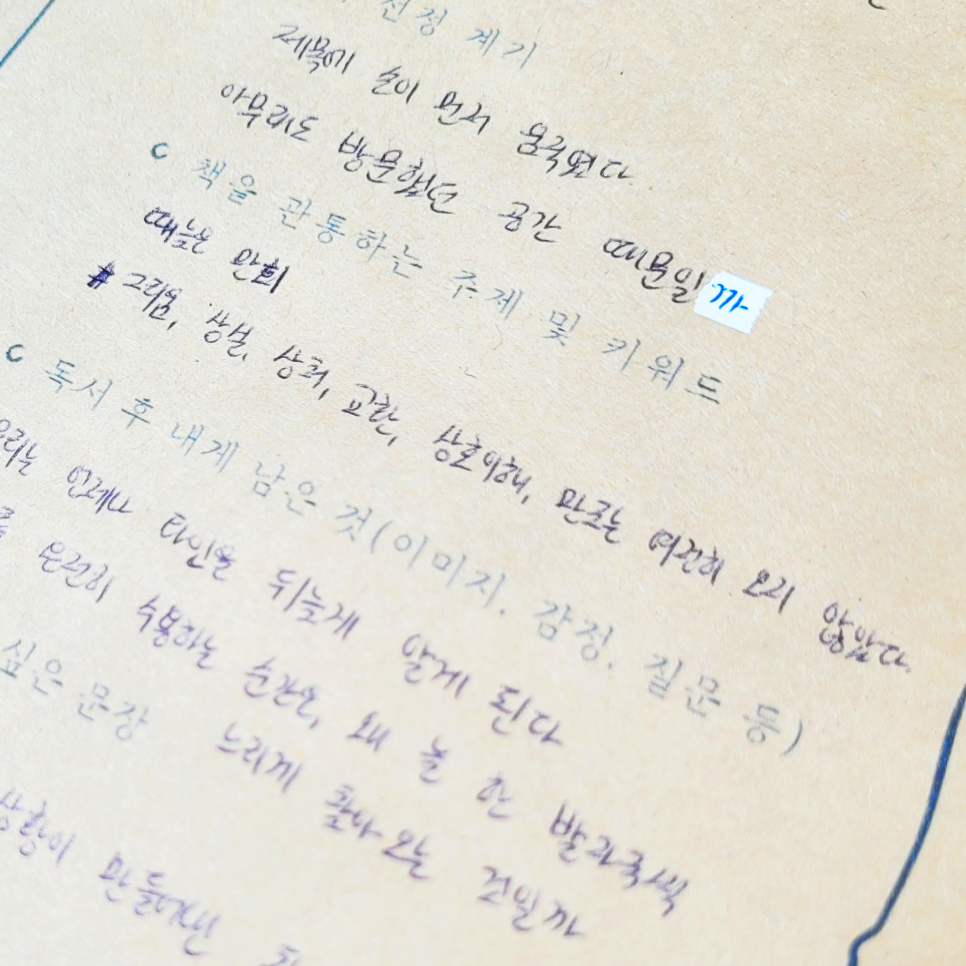 선정 계기
제목에 손이 먼저 움직였다
아무래도 방문했던 공간 때문일까
책을 관통하는 주제 및 키워드
때늦은 만회
# 그리움, 상실, 상회, 교환, 상호이해, 만조는 여전히 오지 않았다.
독서 후 내게 남은 것(이미지, 감정, 질문 등)
우리는 언제나 타인을 뒤늦게 알게 된다
온전히 수용하는 순간은, 왜 늘 한 발자국씩
느리게 찾아오는 것일까
싶은 문장
상황이 만들어낸